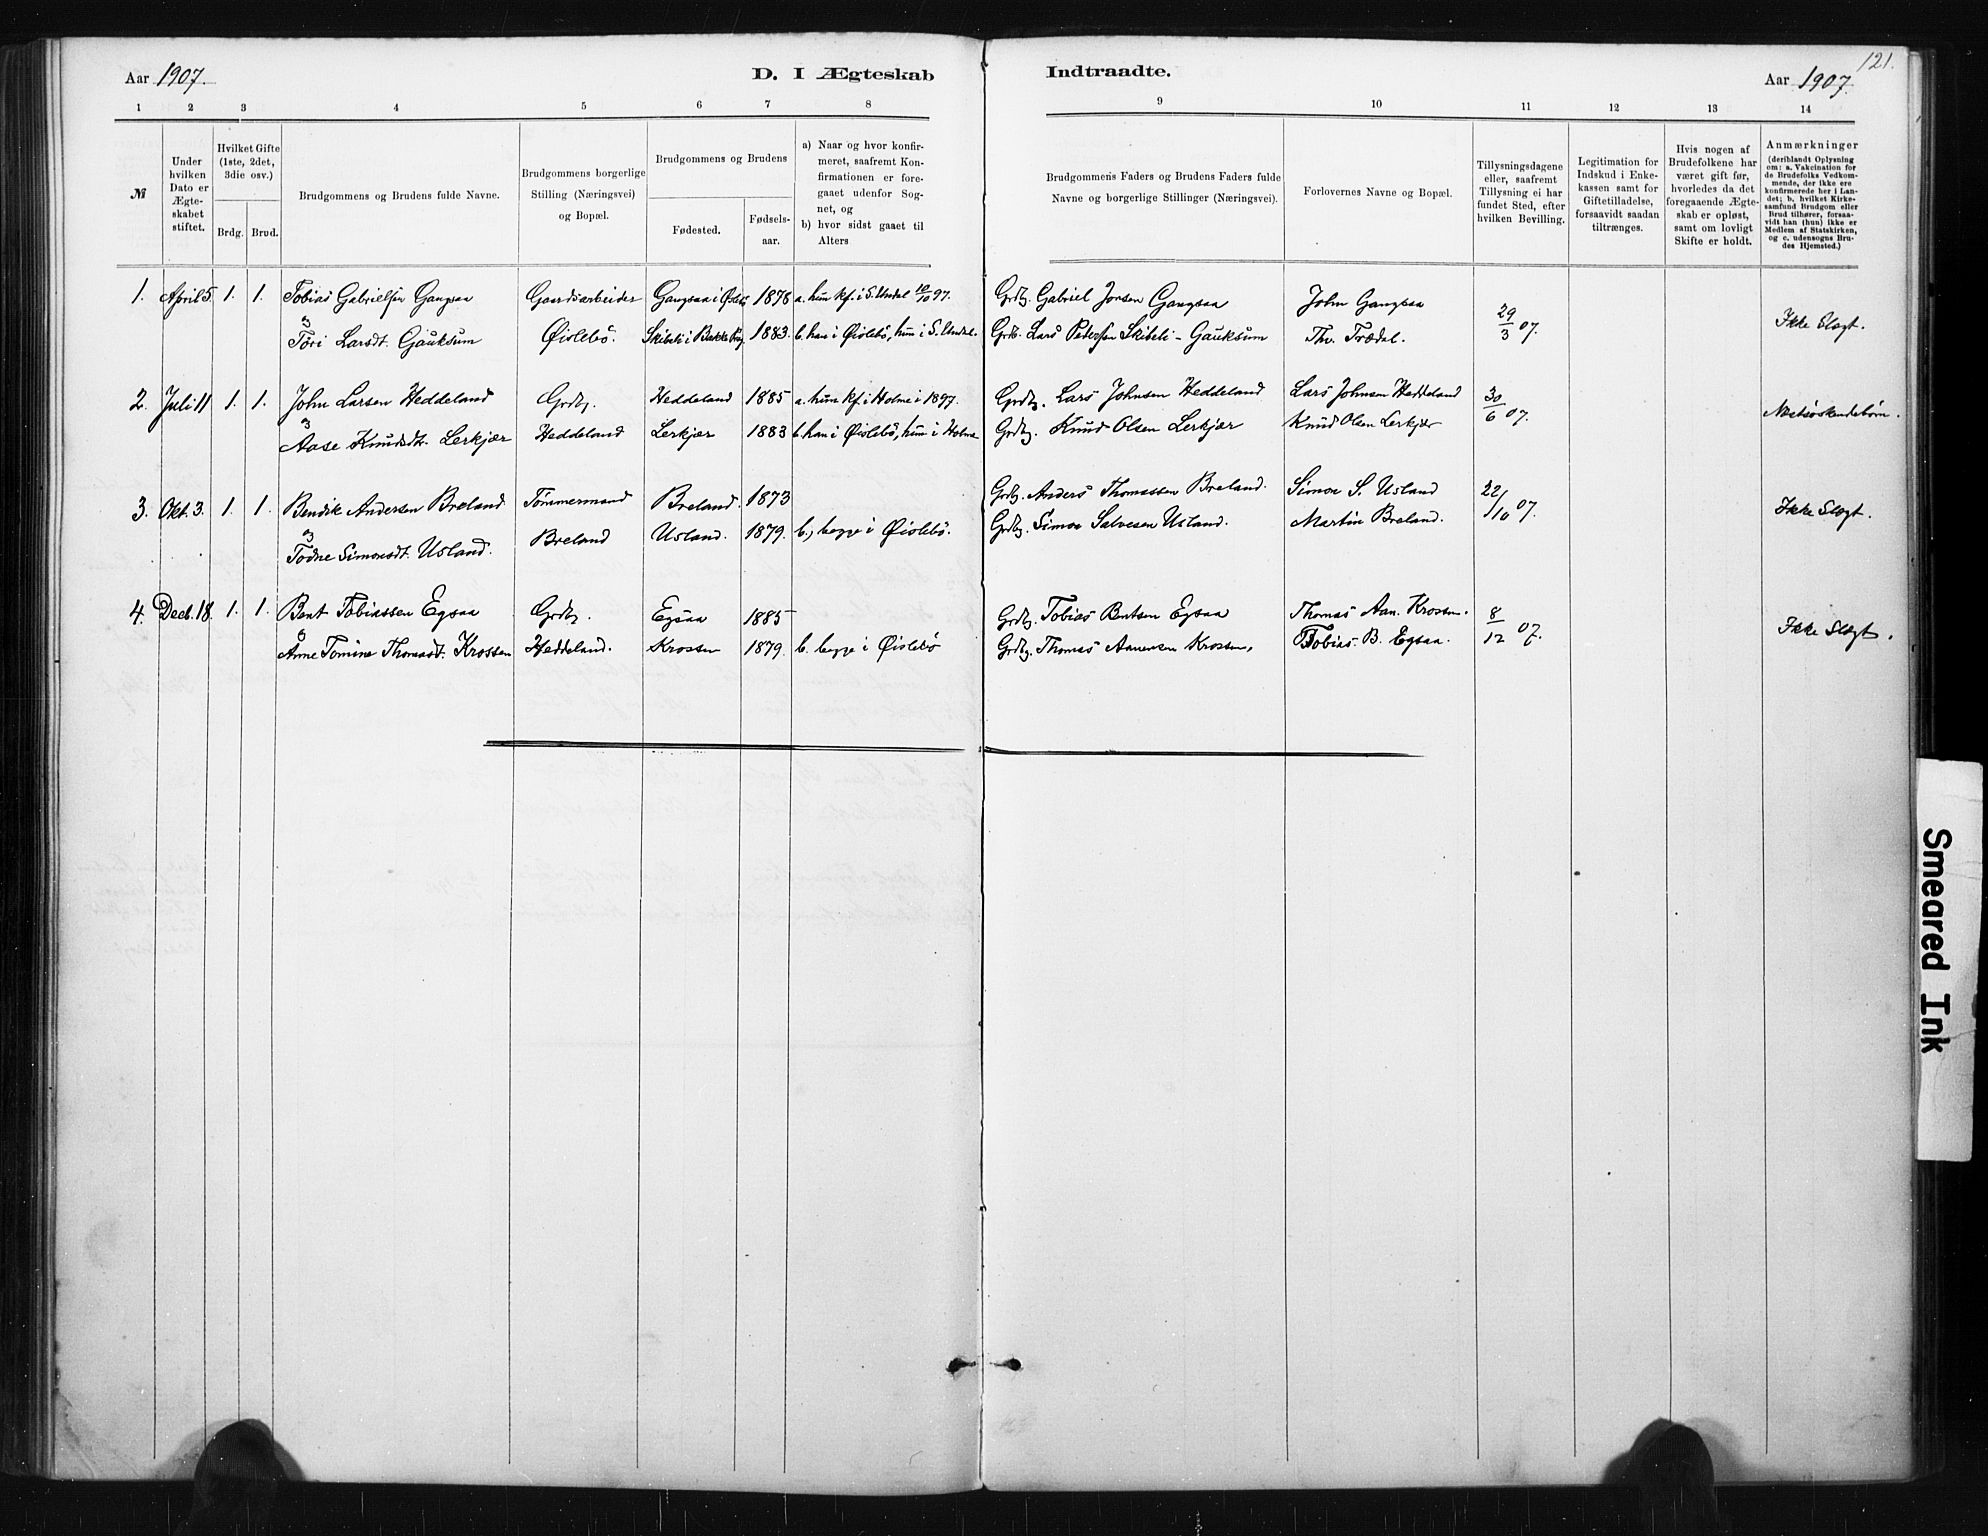 121.
Aar 1907. D. I Ægteskab Indtraadte. Aar 1907
1 2 3 4 5 6 7 8 9 10 11 12 13 14
№
Under hvilken Dato er Ægteskabet stiftet.
Hvilket Gifte (1ste, 2det, 3die osv.)
Brdg. Brud.
Brudgommens og Brudens fulde Navne.
Brudgommens borgerlige Stilling (Næringsvei) og Bopæl.
Brudgommens og Brudens
Fødested.
Fødselsaar.
a) Naar og hvor konfirmeret, saafremt Konfirmationen er foregaaet udenfor Sognet, og
b) hvor sidst gaaet til Alters
Brudgommens Faders og Brudens Faders fulde Navne og borgerlige Stillinger (Næringsvei).
Forlovernes Navne og Bopæl.
Tillysningsdagene eller, saafremt Tillysning ei har fundet Sted, efter hvilken Bevilling.
Legitimation for Indskud i Enkekassen samt for Giftetilladelse, forsaavidt saadan tiltrænges.
Hvis nogen af Brudefolkene har været gift før, hvorledes da det foregaaende Ægteskab er opløst, samt om lovligt Skifte er holdt.
Anmærkninger
(deriblandt Oplysning om: a. Vakcination for de Brudefolks Vedkommende, der ikke ere konfirmerede her i Landet; b. hvilket Kirkesamfund Brudgom eller Brud tilhører, forsaavidt han (hun) ikke er Medlem af Statskirken, og c. udensogns Brudes Hjemsted.)
1. April 5 1. 1. Tobias Gabrielsen Gangsaa Gaardsarbeider Gangsaa i Øisleb 1878 a. hun kf. i S. Undal 10/10 97. Grdb. Gabriel Jonsen Gangsaa John Gangsaa 29/3 07. Ikke Slægt.
og Tori Larsdt. Gauksum Øislebö. Skibeli i Bakke 1883. b. han i Øislebö, hun i S. Undal. Grdb. Lars Pedersen Skibeli - Gauksum Th. Trædal.
2. Juli 11 1. 1. John Larsen Heddeland Grdb. Heddeland 1885 a. hun kf. i Holme i 1897. Grdb. Lars Johnsen Heddeland Lars Johnsen Heddeland 30/6 07. Næstsøskendebørn.
og Aase Knudsdt. Lerkjær Heddeland Lerkjær 1883 b. han i Øislebö, hun i Holme Grdb. Knud Olsen Lerkjær Knud Olsen Lerkjær
3. Okt. 3. 1. 1. Bendik Andersen Breland Tømmermand Breland. 1873 Grdb. Anders Thomassen Breland. Simon S. Usland 22/10 07. Ikke Slægt.
og Todne Simonsdt. Usland. Breland Usland. 1879. b., begge i Øislebö. Grdb. Simon Salvesen Usland. Martin Breland.
4. Decb. 18. 1. 1. Bent Tobiassen Egsaa Grdb. Egsaa 1885 Grdb. Tobias Bentsen Egsaa Thomas Aan. Krossen. 8/12 07. Ikke Slægt.
& Anne Tomine Thomasdt. Krossen Heddeland. Krossen 1879. b. begge i Øislebö Grdb. Thomas Aanensen Krossen. Tobias B. Egsaa.
Smeared Ink